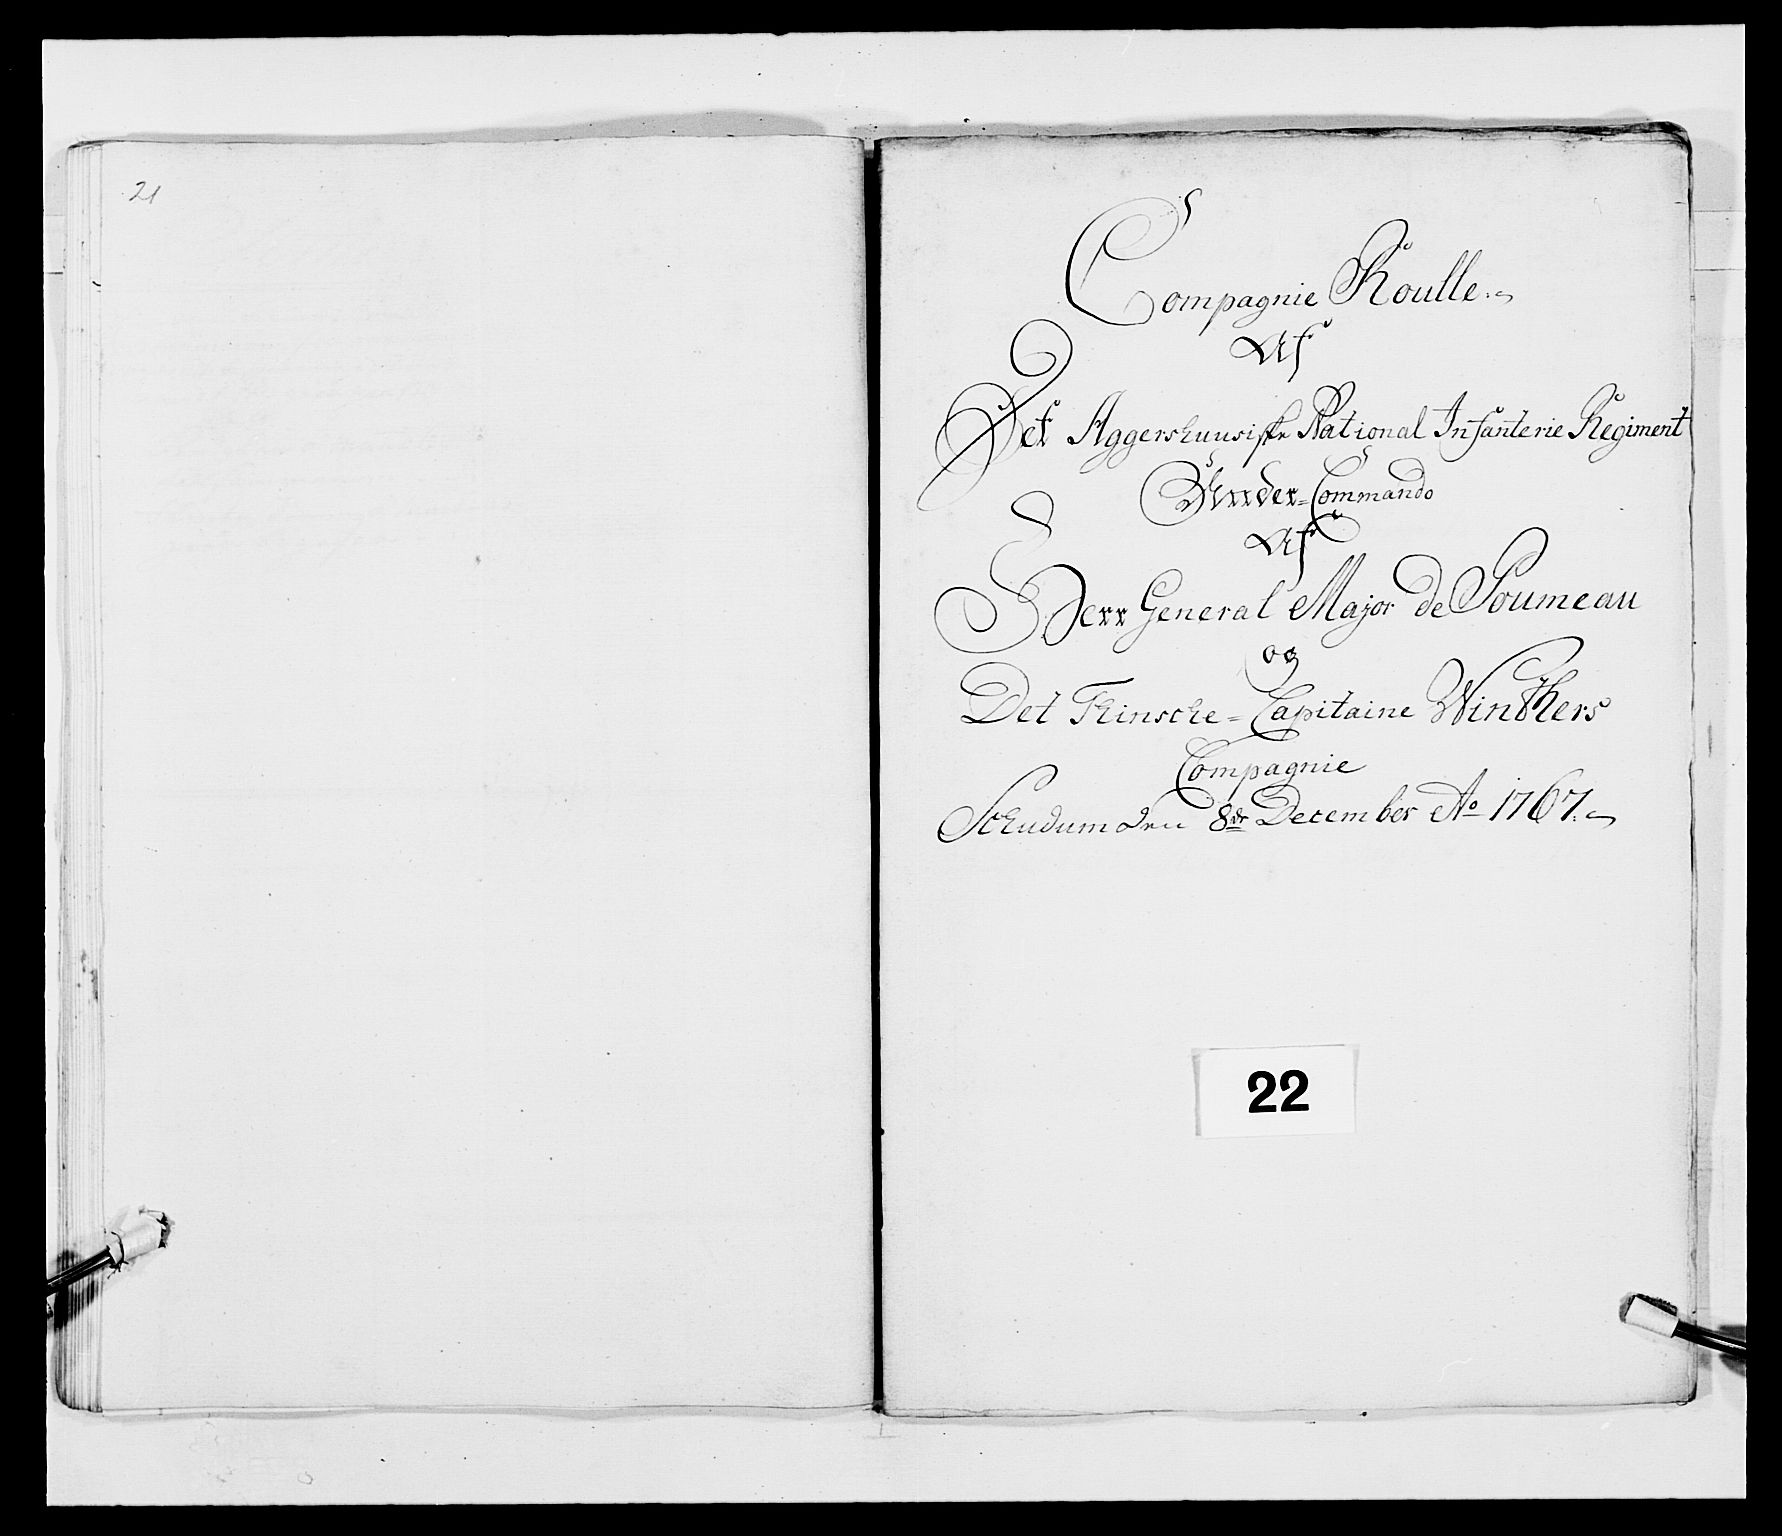 21
Compagnie Roulle.
Af
Det Aggershuusiske National Infanterie Regiment
Under=Commando
Af
Herr General Major de Poumeau
og
Det Thinsche=Capitaine Winthers
Compagnie
Schudum den 8de December Ao 1767.
22